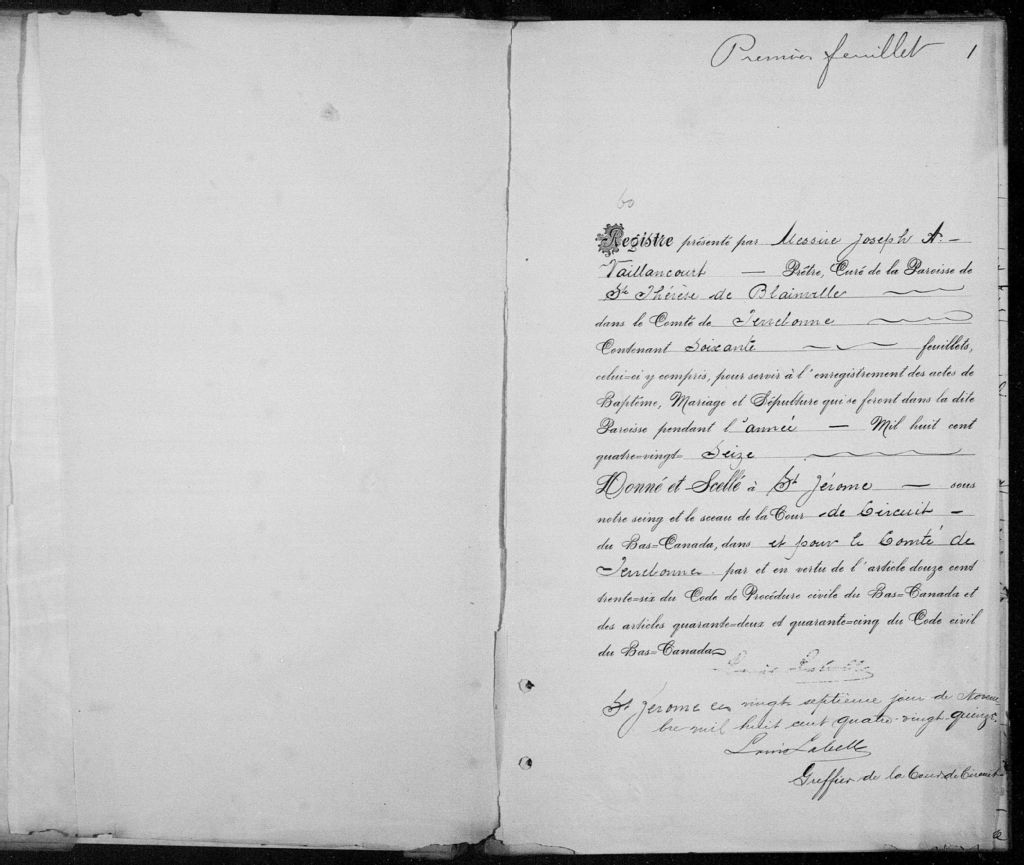 Premier feuillet 1
60
Registre présenté par Messire Joseph A. —
Vaillancourt — Prêtre, Curé de la Paroisse de
Ste Thérèse de Blainville
dans le Comté de Terrebonne
Contenant Soixante feuillets,
celui=ci y compris, pour servir à l'enregistrement des actes de
Baptême, Mariage et Sépulture qui se feront dans la dite
Paroisse pendant l'année — Mil huit cent
quatre=vingt= Seize
Donné et Scellé à St Jérome — sous
notre seing et le sceau de la Cour de Circuit —
du Bas=Canada, dans et pour le Comté de
Terrebonne par et en vertu de l'article douze cent
trente=six du Code de Procédure civile du Bas=Canada et
des articles quarante=deux et quarante=cinq du Code civil
du Bas=Canada
Louis Labelle
St Jérome ce vingt septieme jour de Novem
bre mil huit cent quatre-vingt-quinze.
Louis Labelle
Greffier de la Cour de Circuit